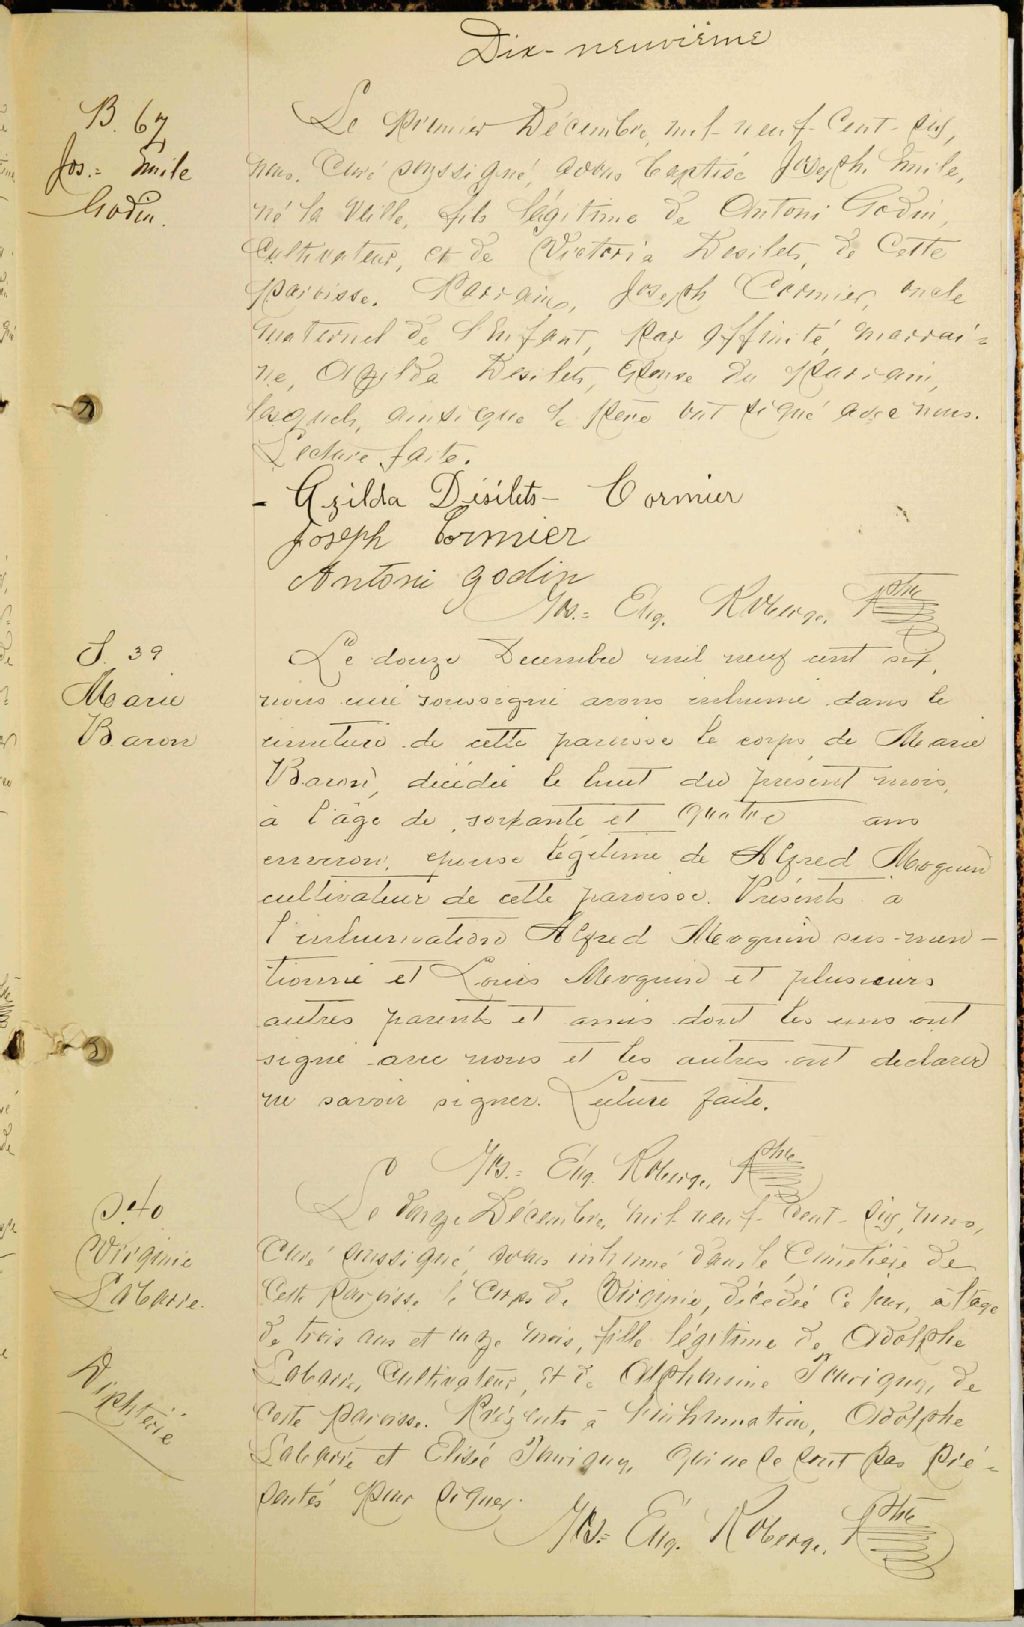 Dix-neuvième
B. 67
Jos.= Émile
Godin.
Le Premier Décembre, mil-neuf-Cent-six,
nous, Curé soussigné, avons baptisé Joseph, Émile,
né la veille, fils légitime de Antoni Godin,
Cultivateur, et de Victoria Désilets, de Cette
Paroisse. Parrain, Joseph Cormier, oncle
maternel de l'Enfant, par affinité, marrai=
ne, Azilda Désilets, épouse du Parrain,
lesquels, ainsi que le Père ont signé avec nous.
Lecture faite.
- Azilda Désilets- Cormier
Joseph Cormier
Antoni Godin
Jos.= Eug. Roberge, Ptre
S. 39
Marie
Baron
Le douze Decembre mil neuf cent six,
nous curé soussigné avons inhumé dans le
cimetière de cette paroisse le corps de Marie
Baron, décédée le huit du présent mois,
à l'âge de soixante et quatre ans
environ, épouse légitime de Alfred Moquin
cultivateur de cette paroisse. Présents à
l'inhumation Alfred Moquin sus-men-
tionné et Louis Moquin et plusieurs
autres parents et amis dont les uns ont
signé avec nous et les autres ont déclaré
ne savoir signer. Lecture faite.
Jos.= Eug. Roberge, Ptre
S. 40
Virginie
Labarre.
Diphtérie
Le Décembre, mil neuf-Cent-six, nous,
Curé soussigné, avons inhumé dans le Cimetière de
Cette Paroisse le Corps de Virginie, décédée ce jour, à l'âge
de trois ans et onze mois, fille légitime de Adolphe
Labarre, Cultivateur, et de Alphonsine Tourigny, de
Cette Paroisse. Présents à l'inhumation, Adolphe
Labarre et Elisée Tourigny, qui ne se sont pas pré=
sentés pour signer.
Jos.= Eug. Roberge, Ptre